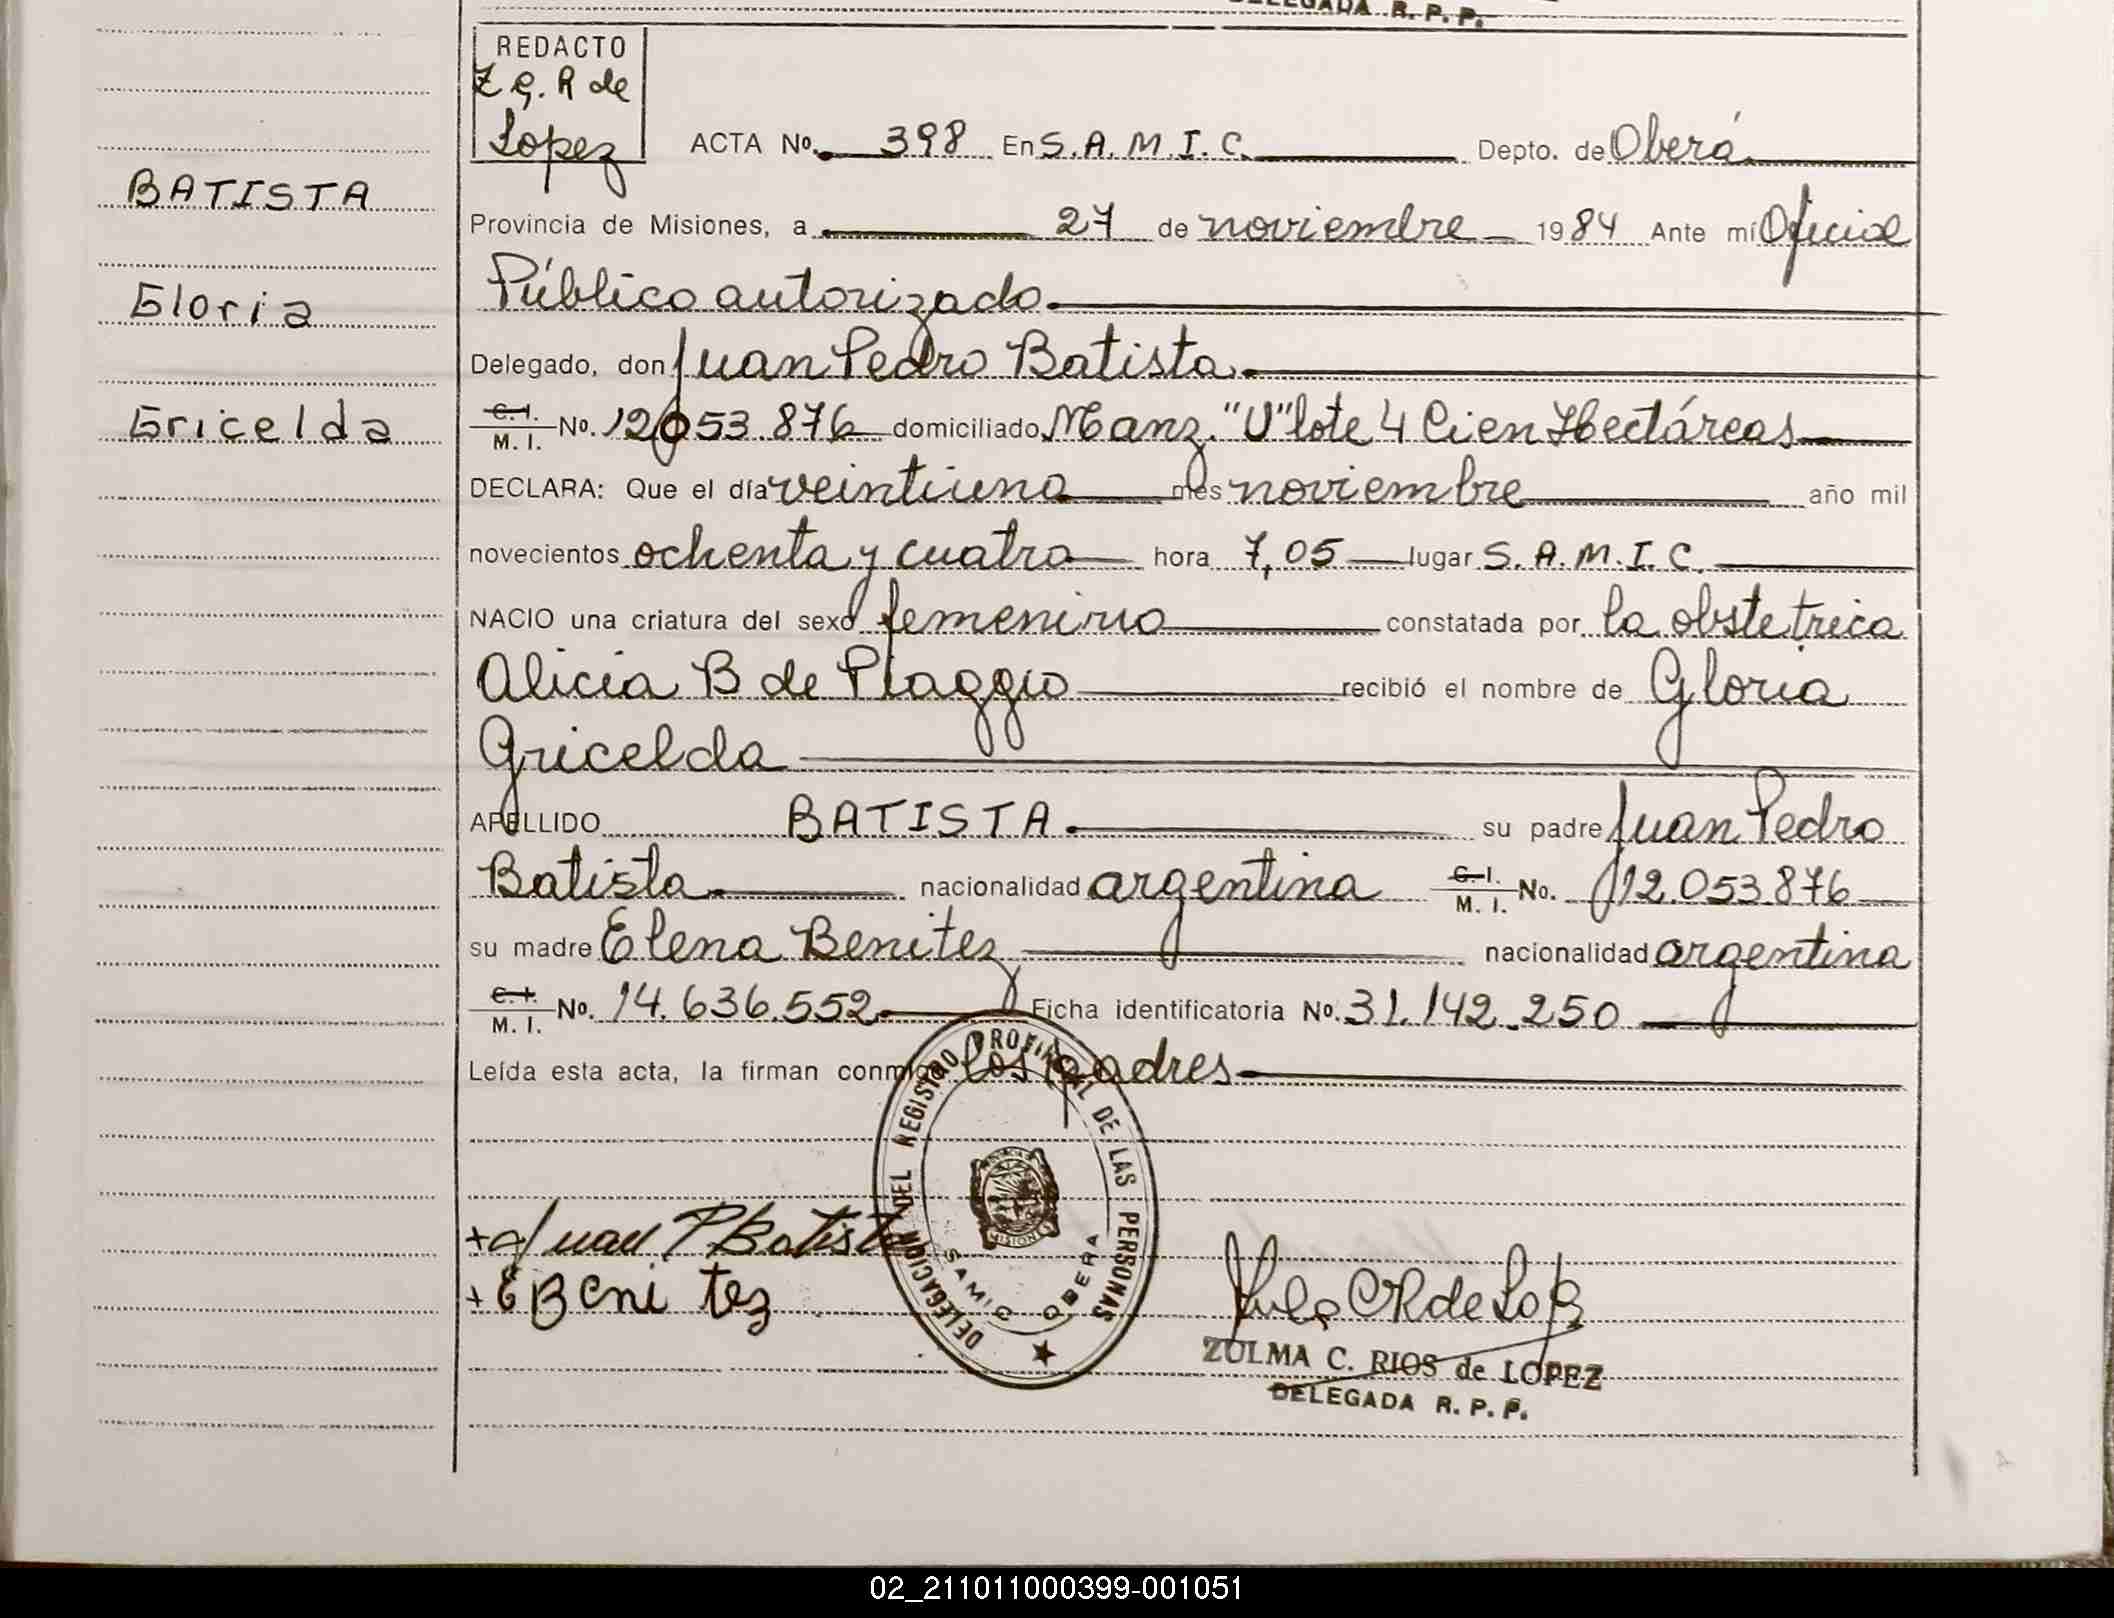 DELEGADA R. P. P.
REDACTO
Z C. R de
Lopez
ACTA No. 398 En S.A.M.I.C. Depto. de Oberá
BATISTA
Provincia de Misiones, a 27 de noviembre 1984 Ante mí Oficial
Gloria
Público autorizado.
Delegado, don Juan Pedro Batista.
Gricelda
C. I. M. I. No. 12053.876 domiciliado Manz. "U" lote 4 Cien Hectáreas
DECLARA: Que el día veintiuno mes noviembre año mil
novecientos ochenta y cuatro hora 7,05 lugar S.A.M.I.C.
NACIO una criatura del sexo femenino constatada por la obstetrica
Alicia B de Piaggio recibió el nombre de Gloria
Gricelda
APELLIDO BATISTA su padre Juan Pedro
Batista nacionalidad argentina C. I. M. I. No. 12.053.876
su madre Elena Benitez nacionalidad argentina
C. I. M. I. No. 14.636.552 Ficha identificatoria No. 31.142.250
Leída esta acta, la firman conmigo los padres
DELEGACION DEL REGISTRO PROVINCIAL DE LAS PERSONAS
MISIONES
SAMIC OBERA
+ Juan P Batista
+ E Benitez
ZULMA C. RIOS de LOPEZ
DELEGADA R. P. P.
02_211011000399-001051